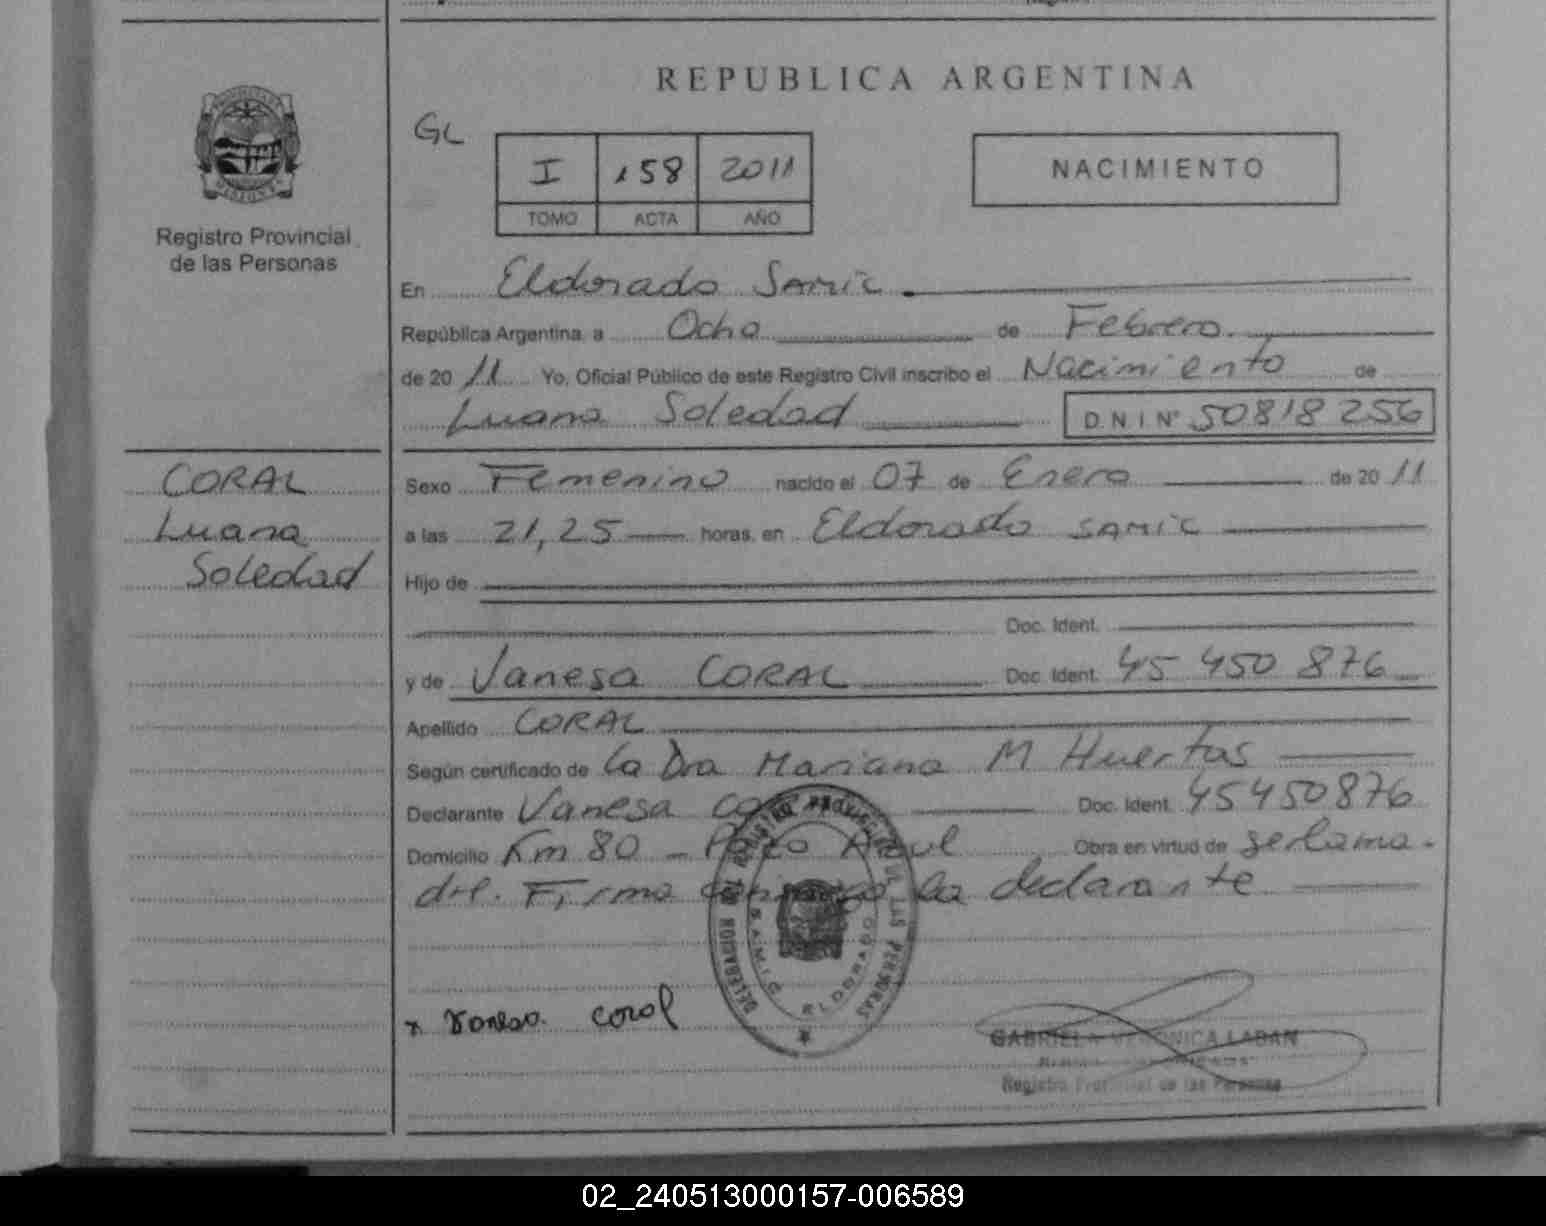 REPUBLICA ARGENTINA
GL
I 158 2011
TOMO ACTA AÑO
NACIMIENTO
Registro Provincial
de las Personas
En Eldorado SAMIC.
República Argentina, a Ocho de Febrero.
de 20 11 Yo, Oficial Público de este Registro Civil inscribo el Nacimiento de
Luana Soledad D.N.I Nº 50818256
CORAL
Luana
Soledad
Sexo Femenino nacido el 07 de Enero de 20 11
a las 21,25 horas, en Eldorado SAMIC
Hijo de
Doc. Ident.
y de Vanesa CORAL Doc. Ident. 45 450 876
Apellido CORAL
Según certificado de la Dra Mariana M Huertas
Declarante Vanesa Doc. Ident. 45450876
Domicilio Km 80 - Pozo Azul Obra en virtud de ser la ma-
dre. Firma la declarante
DELEGACION DEL REGISTRO PROVINCIAL DE LAS PERSONAS
S.A.M.I.C. ELDORADO
x Vanesa. coral
GABRIELA VERONICA LABAN
Registro Provincial de las Personas
02_240513000157-006589